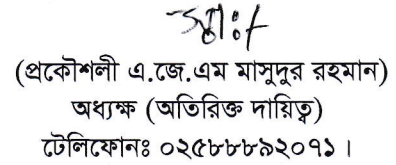 স্বাঃ/
(প্রকৌশলী এ.জে.এম মাসুদুর রহমান)
অধ্যক্ষ (অতিরিক্ত দায়িত্ব)
টেলিফোনঃ ০২৫৮৮৮৯২০৭১।